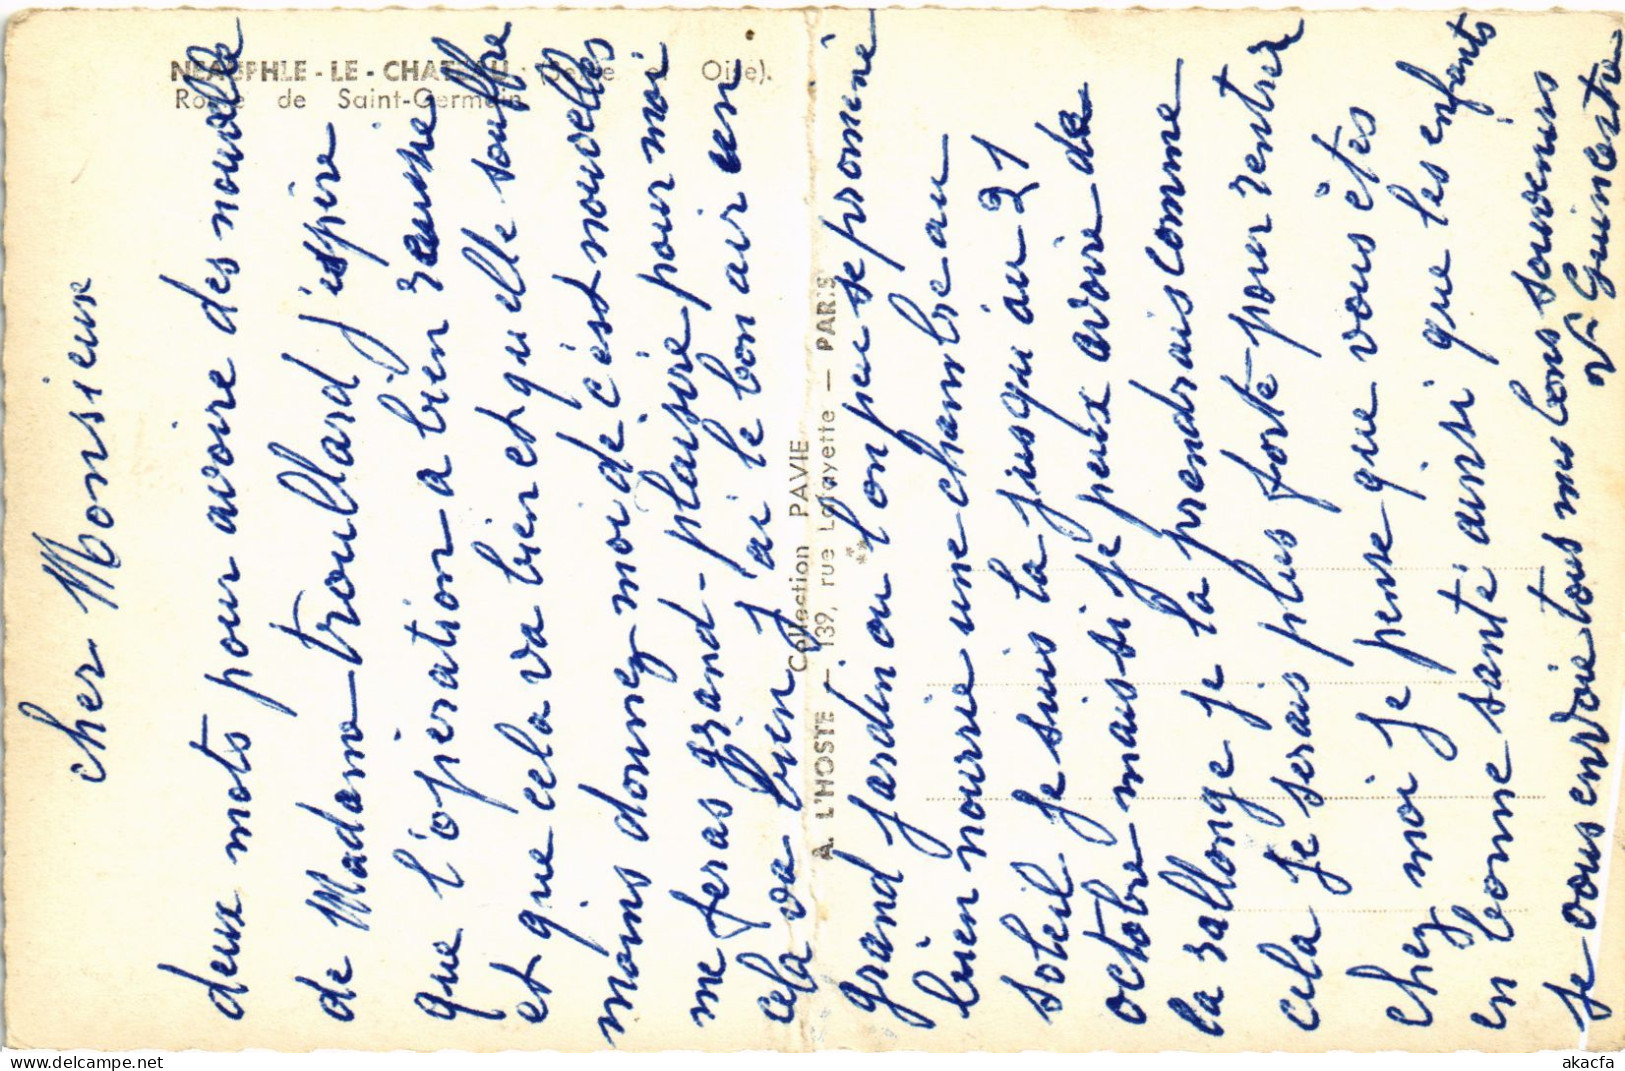 NEAUPHLE-LE-CHATEAU (Seine-et-Oise).
Route de Saint-Germain
Collection PAVIE
A. L'HOSTE — 139, rue Lafayette — PARIS
cher Monsieur
deux mots pour avoire des nouvelle
de Madame trouillard j'espère
que l'opération a bien reussie
et que cela va bien et quelle souffre
moins donnez moi dé cést nouvelles
me feras grand-plaisire pour moi
cela va bien j'ai le bon air un
grand jardin ou l'on peu se promené
bien nourrie une chambre au
soleil je suis la jusqu'au 21
octobre mais si je peux avoire de
la rallonge je la prendrais comme
cela je serais plus forte pour rentrer
chez moi je pense que vous êtes
en bonne santé ainsi que les enfants
je vous envoie tous mes bons souvenirs
Guincestre
akacfa